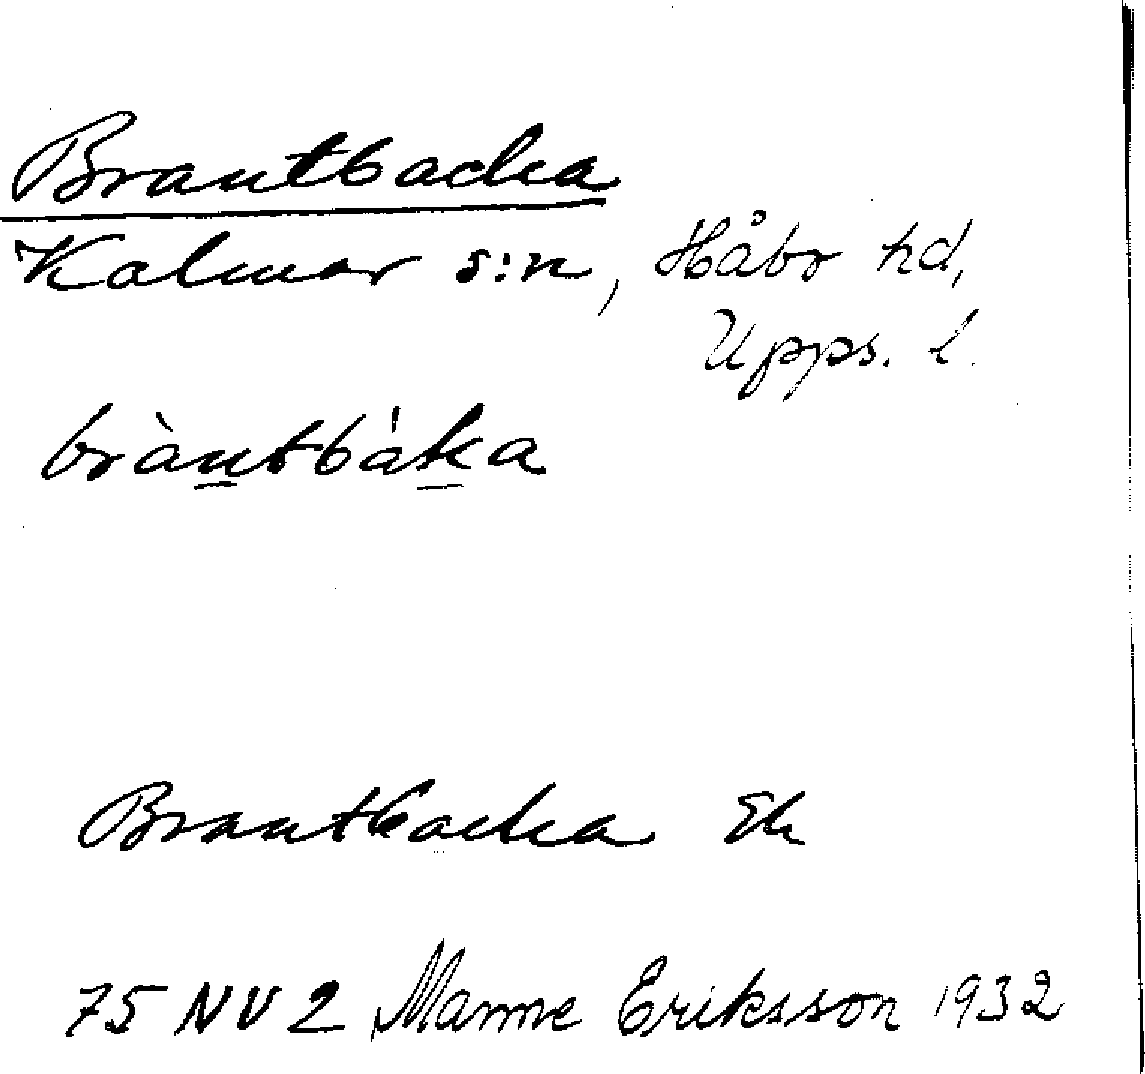 Brantbacka
Kalmar s:n, Håbo hd,
Upps. l.
bràntbáka
Brantbacka Ek
75 NV 2 Manne Eriksson 1932